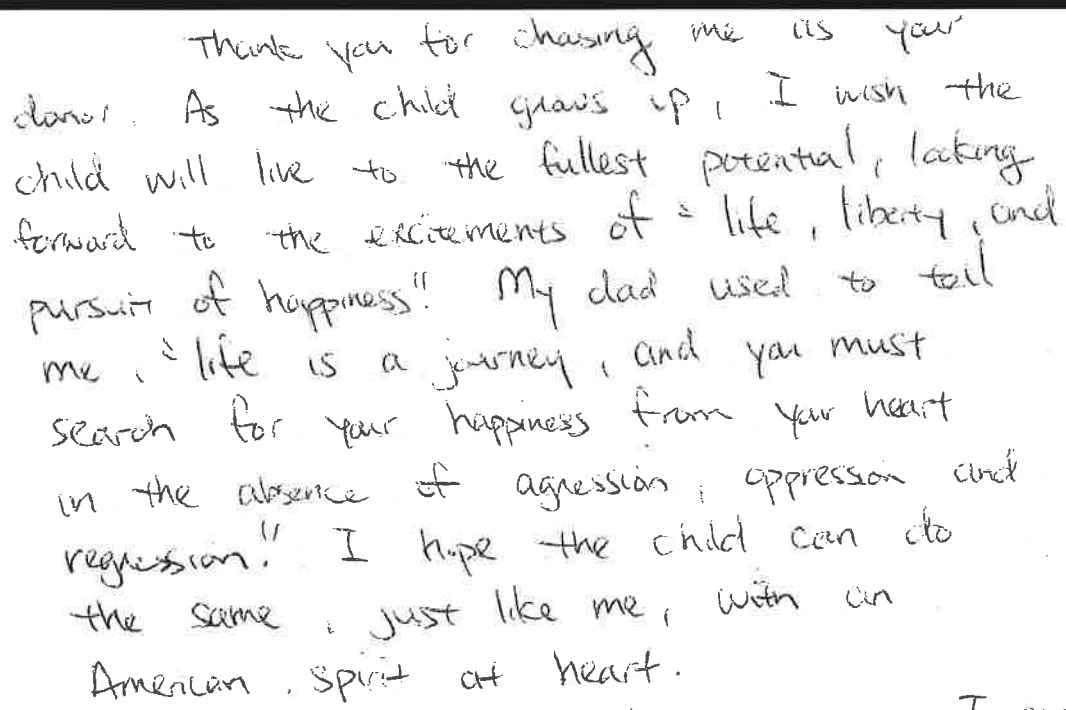 Thank you for choosing me as your
donor. As the child grows up, I wish the
child will live to the fullest potential, looking
forward to the excitements of "life, liberty, and
pursuit of happiness". My dad used to tell
me, "life is a journey, and you must
search for your happiness from your heart
in the absence of agression, oppression and
regression." I hope the child can do
the same, just like me, with an
American spirit at heart.
I